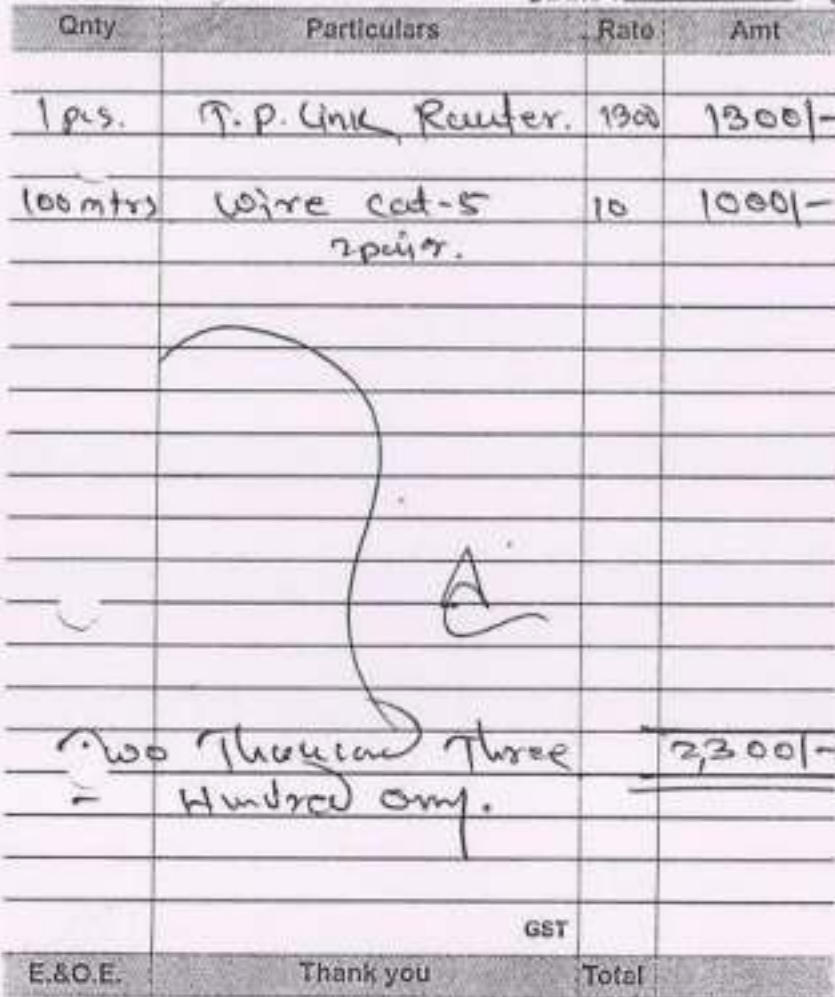 Qnty Particulars Rate Amt
1 pcs. T.P. Link Rauter. 1300 1300/-
100 mtrs Wire cat-5 10 1000/-
2 pair.
Two Thousand Three 2,300/-
Hundred Only.
GST
E.&O.E. Thank you Total